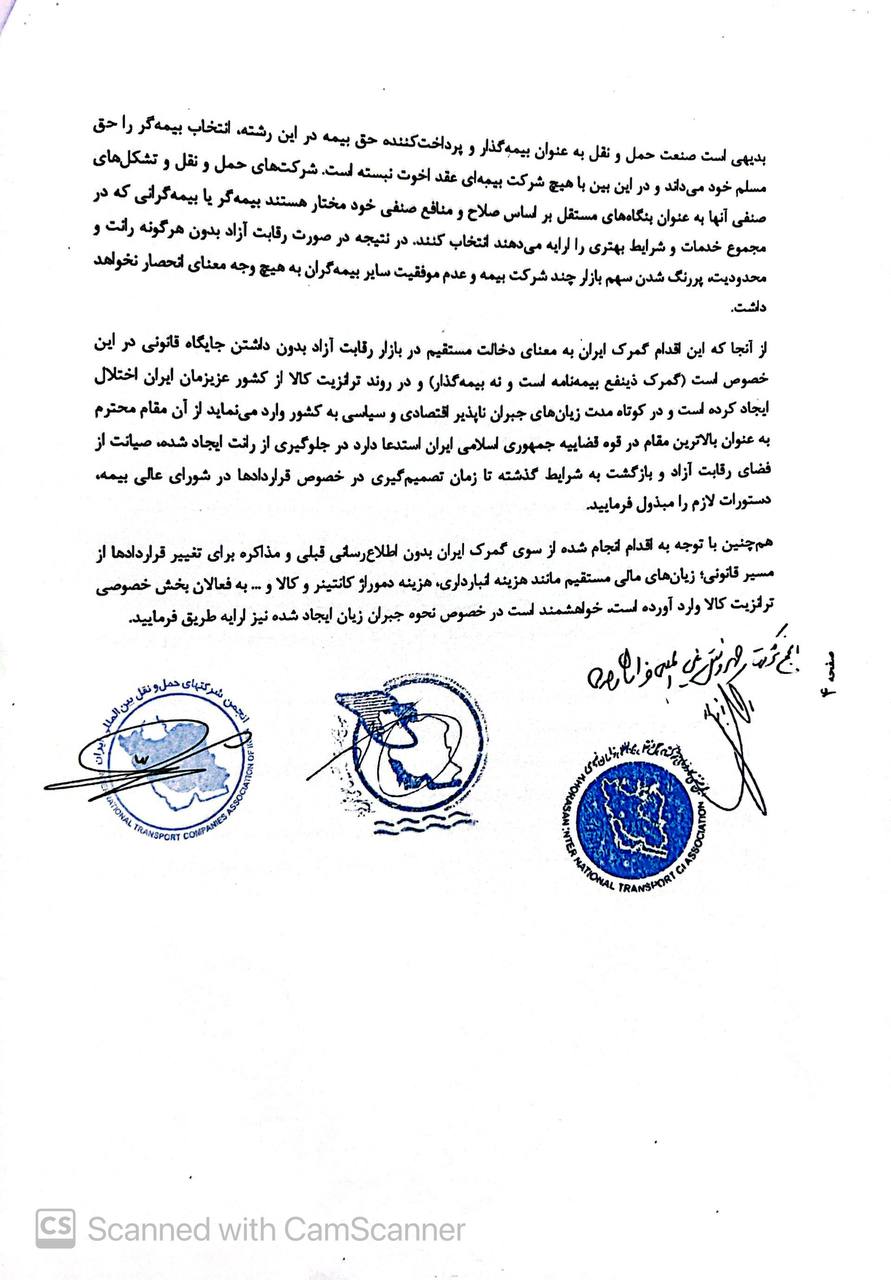 بدیهی است صنعت حمل و نقل به عنوان بیمه‌گذار و پرداخت‌کننده حق بیمه در این رشته، انتخاب بیمه‌گر را حق
مسلم خود می‌داند و در این بین با هیچ شرکت بیمه‌ای عقد اخوت نبسته است. شرکت‌های حمل و نقل و تشکل‌های
صنفی آنها به عنوان بنگاه‌های مستقل بر اساس صلاح و منافع صنفی خود مختار هستند بیمه‌گر یا بیمه‌گرانی که در
مجموع خدمات و شرایط بهتری را ارایه می‌دهند انتخاب کنند. در نتیجه در صورت رقابت آزاد بدون هرگونه رانت و
محدودیت، پررنگ شدن سهم بازار چند شرکت بیمه و عدم موفقیت سایر بیمه‌گران به هیچ وجه معنای انحصار نخواهد
داشت.
از آنجا که این اقدام گمرک ایران به معنای دخالت مستقیم در بازار رقابت آزاد بدون داشتن جایگاه قانونی در این
خصوص است (گمرک ذینفع بیمه‌نامه است و نه بیمه‌گذار) و در روند ترانزیت کالا از کشور عزیزمان ایران اختلال
ایجاد کرده است و در کوتاه مدت زیان‌های جبران ناپذیر اقتصادی و سیاسی به کشور وارد می‌نماید از آن مقام محترم
به عنوان بالاترین مقام در قوه قضاییه جمهوری اسلامی ایران استدعا دارد در جلوگیری از رانت ایجاد شده، صیانت از
فضای رقابت آزاد و بازگشت به شرایط گذشته تا زمان تصمیم‌گیری در خصوص قراردادها در شورای عالی بیمه،
دستورات لازم را مبذول فرمایید.
هم‌چنین با توجه به اقدام انجام شده از سوی گمرک ایران بدون اطلاع‌رسانی قبلی و مذاکره برای تغییر قراردادها از
مسیر قانونی؛ زیان‌های مالی مستقیم مانند هزینه انبارداری، هزینه دموراژ کانتینر و کالا و ... به فعالان بخش خصوصی
ترانزیت کالا وارد آورده است. خواهشمند است در خصوص نحوه جبران زیان ایجاد شده نیز ارایه طریق فرمایید.
صفحه ۴
انجمن شرکتهای حمل و نقل بین المللی ایران
INTERNATIONAL TRANSPORT COMPANIES ASSOCIATION OF
KHORASAN INTER NATIONAL TRANSPORT CI ASSOCIATION
CS Scanned with CamScanner